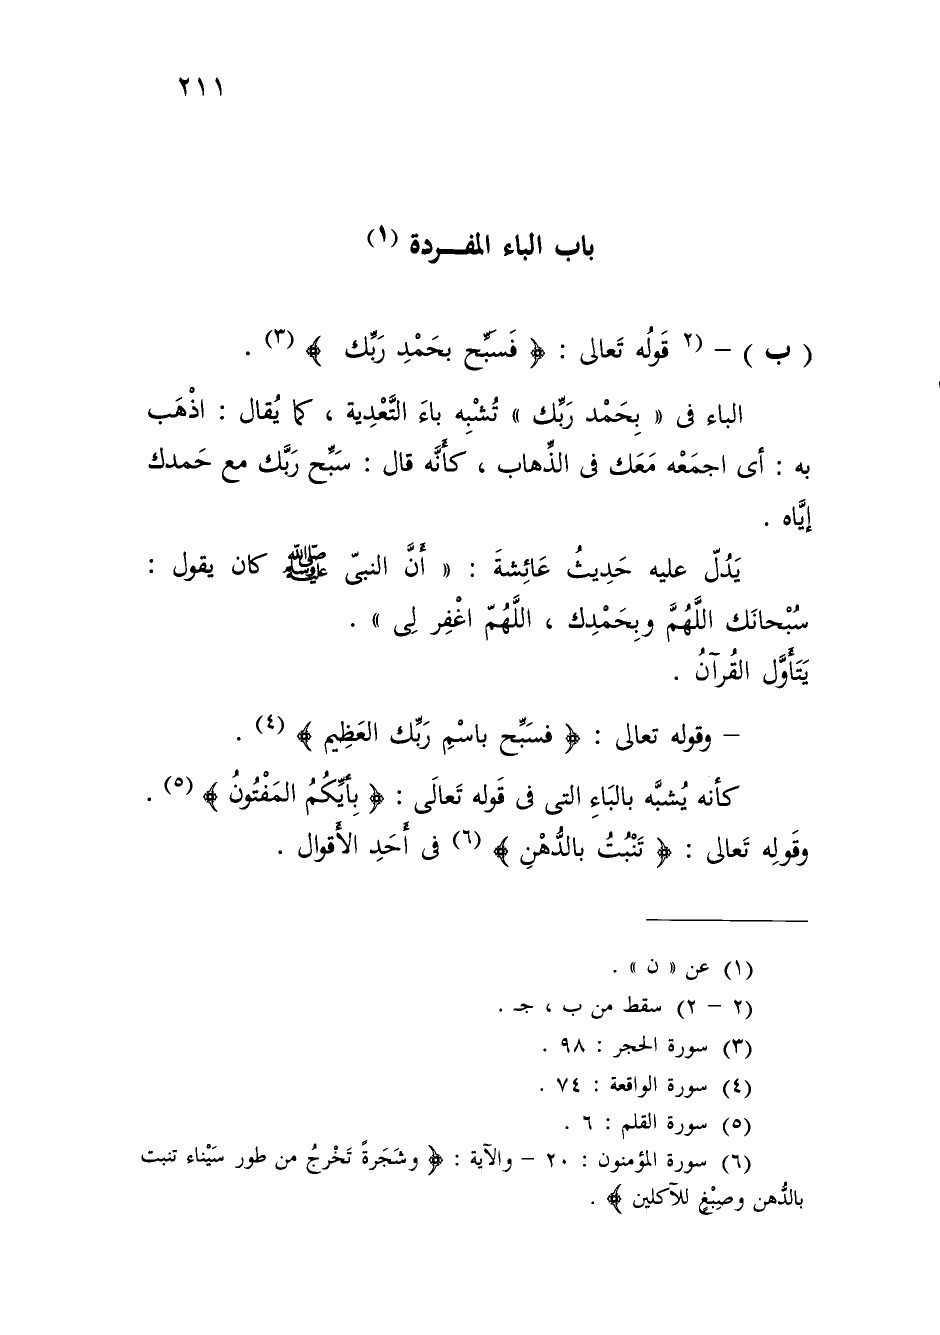 ٢١١
باب الباء المفـــردة (١)
( ب ) – (٢ قَولُه تَعالى : ﴿ فَسَبِّح بحَمْدِ رَبِّك ﴾ (٣) .
الباء فى « بِحَمْد رَبِّك » تُشْبِه باءَ التَّعْدِية ، كما يُقال : اذْهَب
به : أى اجمَعْه مَعَك فى الذِّهاب ، كأَنَّه قال : سَبِّح رَبَّك مع حَمدك
إيَّاه .
يَدُلّ عليه حَدِيثُ عَائِشةَ : « أَنَّ النبىّ ﷺ كان يقول :
سُبْحانَك اللَّهُمَّ وبِحَمْدِك ، اللَّهُمّ اغْفِر لِى » .
يَتَأَوَّل القُرآنُ .
– وقوله تعالى : ﴿ فسَبِّح باسْمِ رَبِّك العَظِيم ﴾ (٤) .
كأنه يُشبَّه بالبَاءِ التى فى قَوله تَعالَى : ﴿ بِأَيِّكُمُ المَفْتُونُ ﴾ (٥) .
وقَولِه تَعالى : ﴿ تَنْبُتُ بالدُّهْنِ ﴾ (٦) فى أَحَدِ الأَقوال .
(١) عن « ن » .
(٢ – ٢) سقط من ب ، جـ .
(٣) سورة الحجر : ٩٨ .
(٤) سورة الواقعة : ٧٤ .
(٥) سورة القلم : ٦ .
(٦) سورة المؤمنون : ٢٠ – والآية : ﴿ وشَجَرةً تَخْرجُ من طور سَيْناء تنبت
بالدُّهن وصِبْغٍ للآكلين ﴾ .